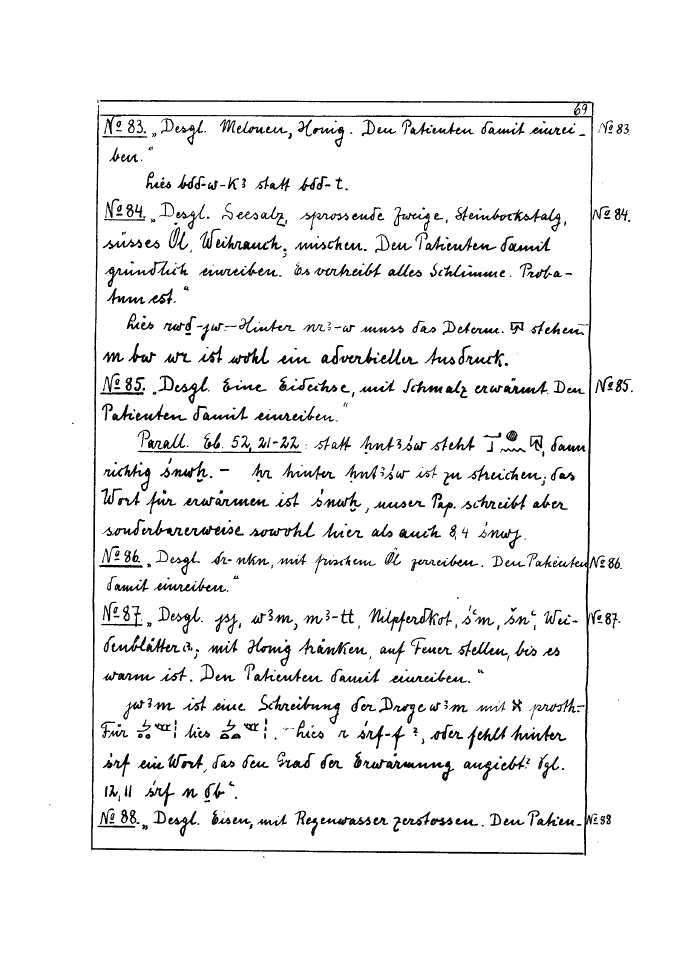 69
No 83. „Desgl. Melonen, Honig. Den Patienten damit einrei- No 83.
ben.“
Lies bdd-w-kꜣ statt bdd-t.
No 84. „Desgl. Seesalz, sprossende Zweige, Steinbockstalg, No 84.
süsses Öl, Weihrauch; mischen. Den Patienten damit
gründlich einreiben. Es vertreibt alles Schlimme. Proba-
tum est.“
Lies rwḏ-jw.– Hinter nrꜣ-w muss das Determ. 𓄛 stehen.
m bw wr ist wohl ein adverbieller Ausdruck.
No 85. „Desgl. Eine Eidechse, mit Schmalz erwärmt. Den No 85.
Patienten damit einreiben.“
Parall. Eb. 52, 21-22: statt ḥntꜣśw steht dann
richtig śnwḫ. – ḥr hinter ḥntꜣśw ist zu streichen; das
Wort für erwärmen ist śnwḫ, unser Pap. schreibt aber
sonderbarerweise sowohl hier als auch 8,4 śnwj.
No 86. „Desgl. dr-nkn, mit frischem Öl zerreiben. Den Patienten No 86.
damit einreiben.“
No 87. „Desgl. jsj, wꜣm, mꜣ-tt, Nilpferdkot, śꜥm, šnꜥ, Wei- No 87.
denblätter(?); mit Honig tränken, auf Feuer stellen, bis es
warm ist. Den Patienten damit einreiben.“
jwꜣm ist eine Schreibung der Droge wꜣm mit prosth.
Für lies . – Lies r śrf-f ?, oder fehlt hinter
śrf ein Wort, das den Grad der Erwärmung angiebt? Vgl.
12,11 śrf n ḏbꜥ.
No 88. „Desgl. Eisen, mit Regenwasser zerstossen. Den Patien- No 88